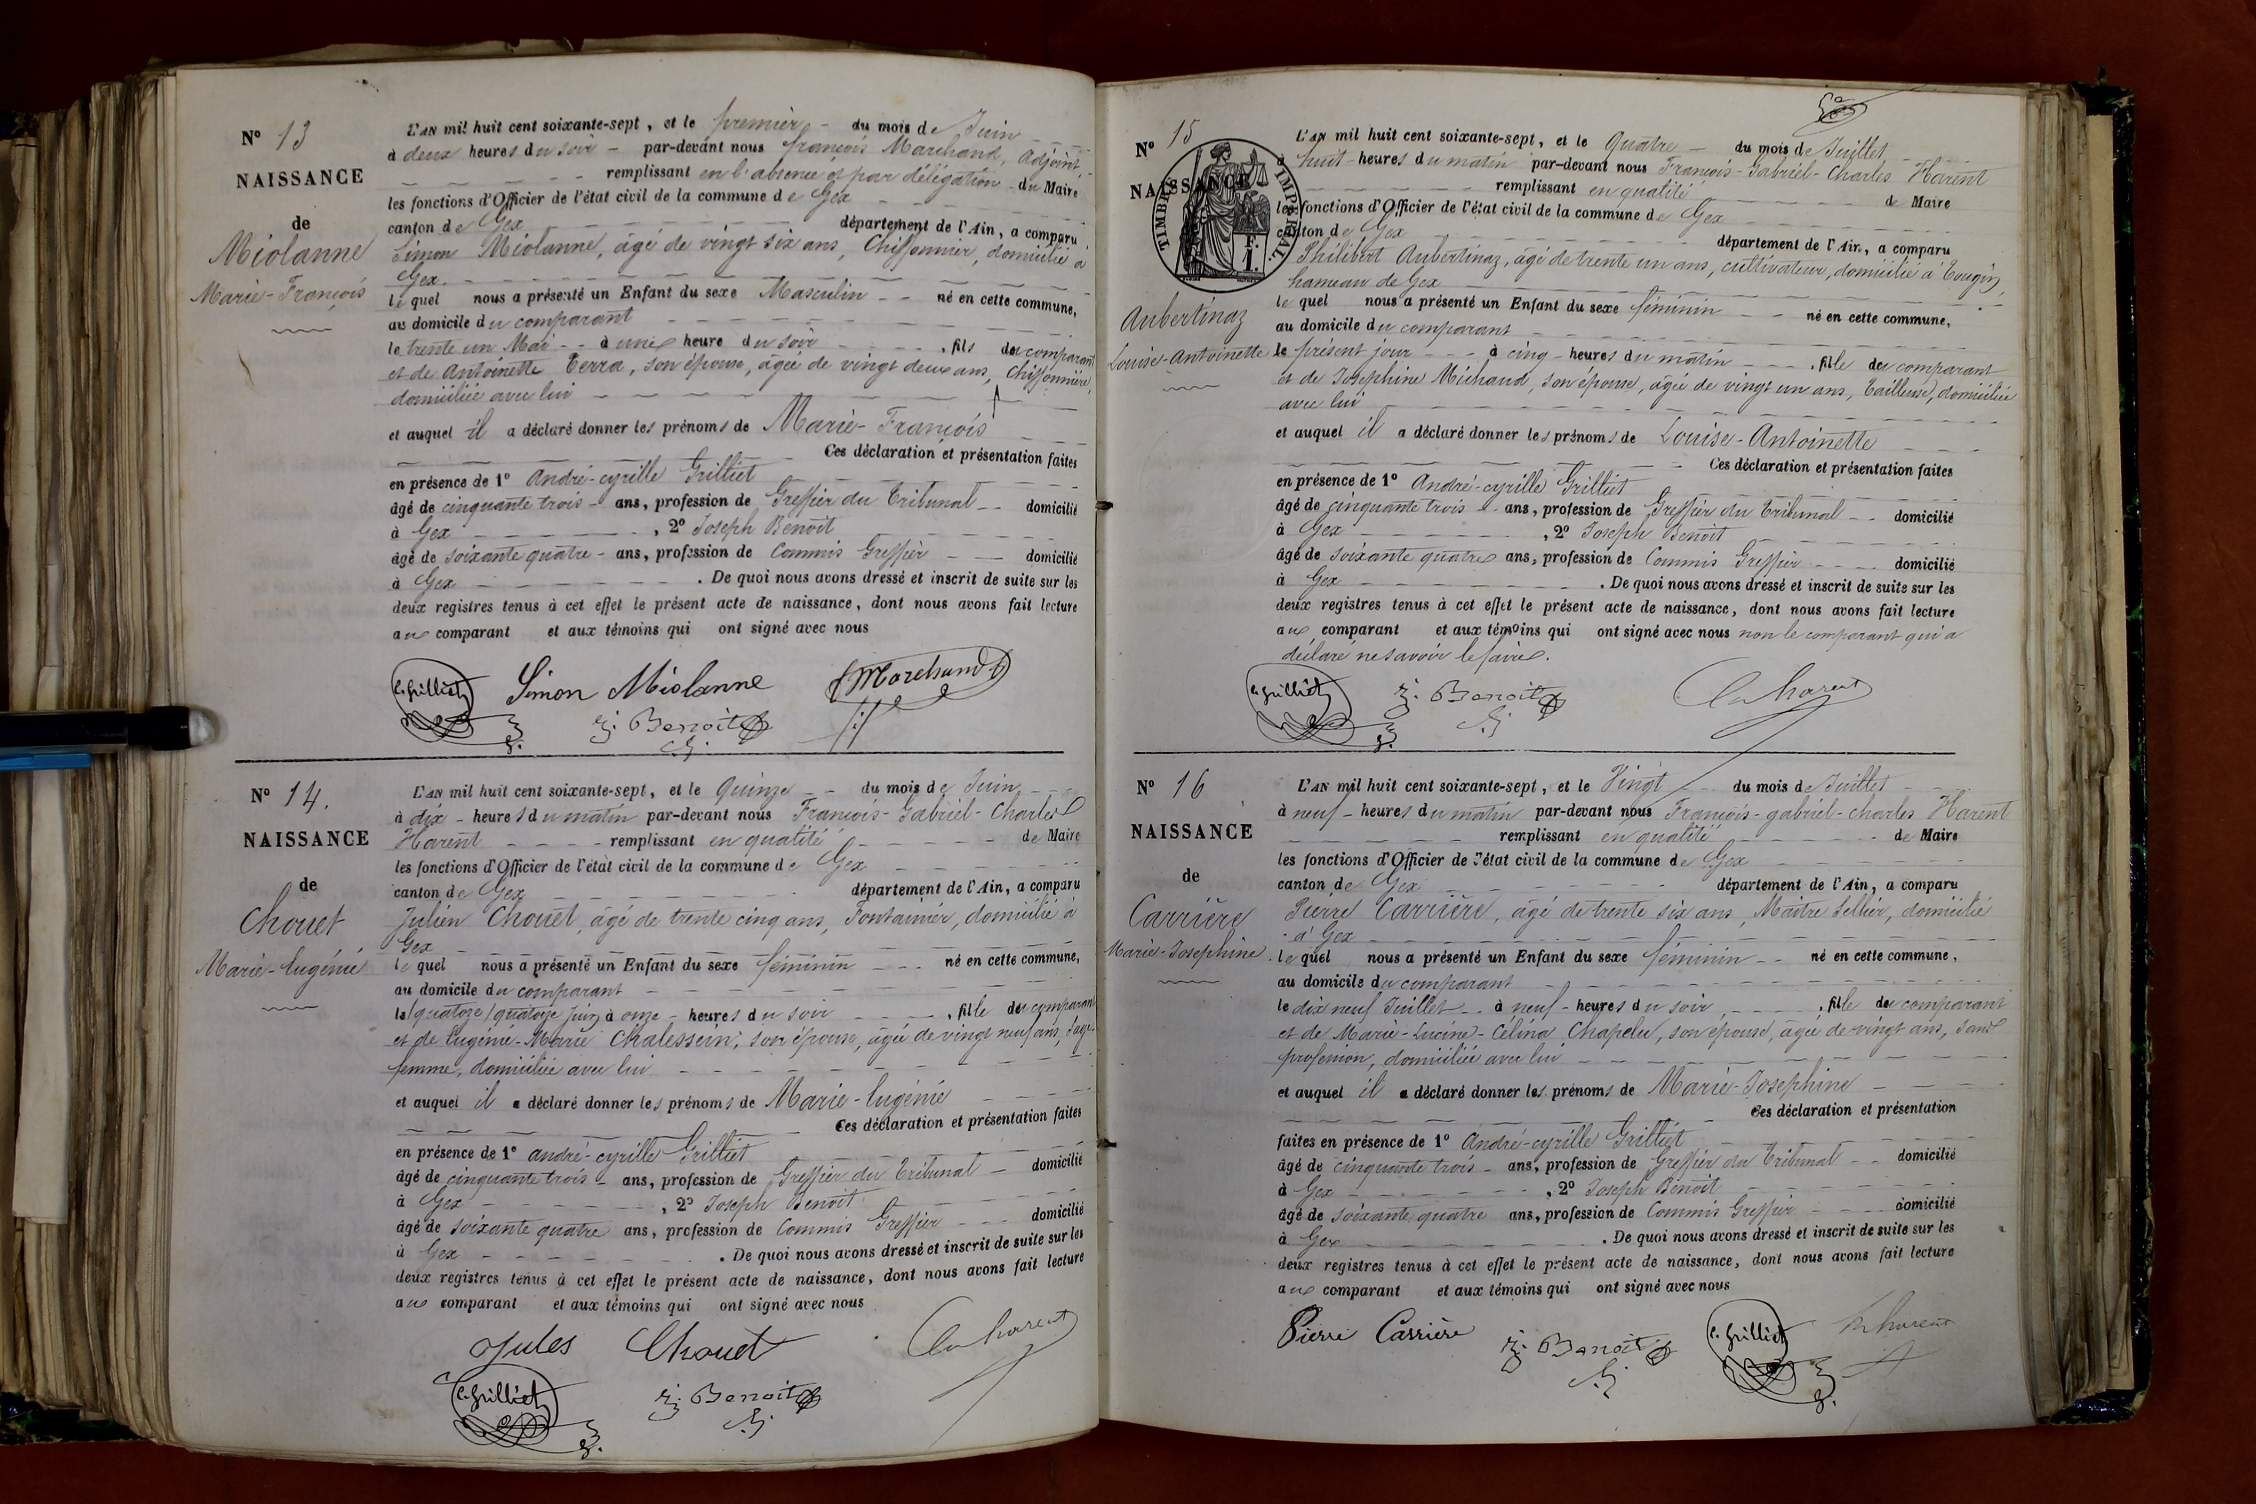 N° 13
NAISSANCE
de
Miolanne
Marie-François
L'AN mil huit cent soixante-sept, et le premier du mois de Juin
à deux heures du soir par-devant nous françois Marchand, Adjoint,
remplissant en l'absence et par délégation du Maire
les fonctions d'Officier de l'état civil de la commune de Gex
canton de Gex département de l'Ain, a comparu
Simon Miolanne, âgé de vingt six ans, Chiffonnier, domicilié à
Gex
le quel nous a présenté un Enfant du sexe Masculin né en cette commune,
au domicile du comparant
le trente un Mai à une heure du soir, fils du comparant
et de Antoinette Terra, son épouse, âgée de vingt deux ans, Chiffonnière,
domiciliée avec lui
et auquel il a déclaré donner les prénoms de Marie-François
Ces déclaration et présentation faites
en présence de 1° André-cyrille Grilliet
âgé de cinquante trois ans, profession de Greffier du Tribunal domicilié
à Gex, 2° Joseph Benoit
âgé de soixante quatre ans, profession de Commis Greffier domicilié
à Gex. De quoi nous avons dressé et inscrit de suite sur les
deux registres tenus à cet effet le présent acte de naissance, dont nous avons fait lecture
au comparant et aux témoins qui ont signé avec nous
C. Grilliet Simon Miolanne f Marchand
j. Benoit
N° 14.
NAISSANCE
de
Chouet
Marie-Eugénie
L'AN mil huit cent soixante-sept, et le Quinze du mois de Juin
à dix heures du matin par-devant nous François-Gabriel-Charles
Harent remplissant en qualité de Maire
les fonctions d'Officier de l'état civil de la commune de Gex
canton de Gex département de l'Ain, a comparu
Julien Chouet, âgé de trente cinq ans, Fontainier, domicilié à
Gex
le quel nous a présenté un Enfant du sexe féminin né en cette commune,
au domicile du comparant
le (quatoze) quatorze juin à onze heures du soir, fille du comparant
et de Eugénie-Marie Chalessein, son épouse, âgée de vingt neuf ans, Sage-
femme, domiciliée avec lui
et auquel il a déclaré donner les prénoms de Marie-Eugénie
Ces déclaration et présentation faites
en présence de 1° andré-cyrille Grilliet
âgé de cinquante trois ans, profession de Greffier du Tribunal domicilié
à Gex, 2° Joseph Benoit
âgé de soixante quatre ans, profession de Commis Greffier domicilié
à Gex. De quoi nous avons dressé et inscrit de suite sur les
deux registres tenus à cet effet le présent acte de naissance, dont nous avons fait lecture
au comparant et aux témoins qui ont signé avec nous
Jules Chouet Ch harent
C. Grilliet j. Benoit
N° 15
NAISSANCE
TIMBRE IMPERIAL.
1 F.
Aubertinaz
Louise-Antoinette
L'AN mil huit cent soixante-sept, et le Quatre du mois de Juillet
à huit heures du matin par-devant nous François-Gabriel-Charles Harent
remplissant en qualité de Maire
les fonctions d'Officier de l'état civil de la commune de Gex
canton de Gex département de l'Ain, a comparu
Philibert Aubertinaz, âgé de trente un ans, cultivateur, domicilié à Tougin,
hameau de Gex
le quel nous a présenté un Enfant du sexe féminin né en cette commune,
au domicile du comparant
le présent jour à cinq heures du matin, fille du comparant
et de Josephine Michaud, son épouse, âgée de vingt un ans, Tailleuse, domiciliée
avec lui
et auquel il a déclaré donner les prénoms de Louise-Antoinette
Ces déclaration et présentation faites
en présence de 1° André-cyrille Grilliet
âgé de cinquante trois ans, profession de Greffier du Tribunal domicilié
à Gex, 2° Joseph Benoit
âgé de soixante quatre ans, profession de Commis Greffier domicilié
à Gex. De quoi nous avons dressé et inscrit de suite sur les
deux registres tenus à cet effet le présent acte de naissance, dont nous avons fait lecture
au comparant et aux témoins qui ont signé avec nous non le comparant qui a
déclaré ne savoir le faire.
C. Grilliet j. Benoit Ch harent
N° 16
NAISSANCE
de
Carrière
Marie-Josephine
L'AN mil huit cent soixante-sept, et le Vingt du mois de Juillet
à neuf heures du matin par-devant nous François-gabriel-charles Harent
remplissant en qualité de Maire
les fonctions d'Officier de l'état civil de la commune de Gex
canton de Gex département de l'Ain, a comparu
Pierre Carrière, âgé de trente six ans, Maître Sellier, domicilié
à Gex
le quel nous a présenté un Enfant du sexe féminin né en cette commune,
au domicile du comparant
le dix neuf Juillet à neuf heures du soir, fille du comparant
et de Marie-Lucine-Célina Chapelu, son épouse, âgée de vingt ans, Sans
profession, domiciliée avec lui
et auquel il a déclaré donner les prénoms de Marie-Josephine
Ces déclaration et présentation
faites en présence de 1° André-cyrille Grilliet
âgé de cinquante trois ans, profession de Greffier du Tribunal domicilié
à Gex, 2° Joseph Benoit
âgé de soixante quatre ans, profession de Commis Greffier domicilié
à Gex. De quoi nous avons dressé et inscrit de suite sur les
deux registres tenus à cet effet le présent acte de naissance, dont nous avons fait lecture
au comparant et aux témoins qui ont signé avec nous
Pierre Carrière j. Benoit C. Grilliet Ch harent